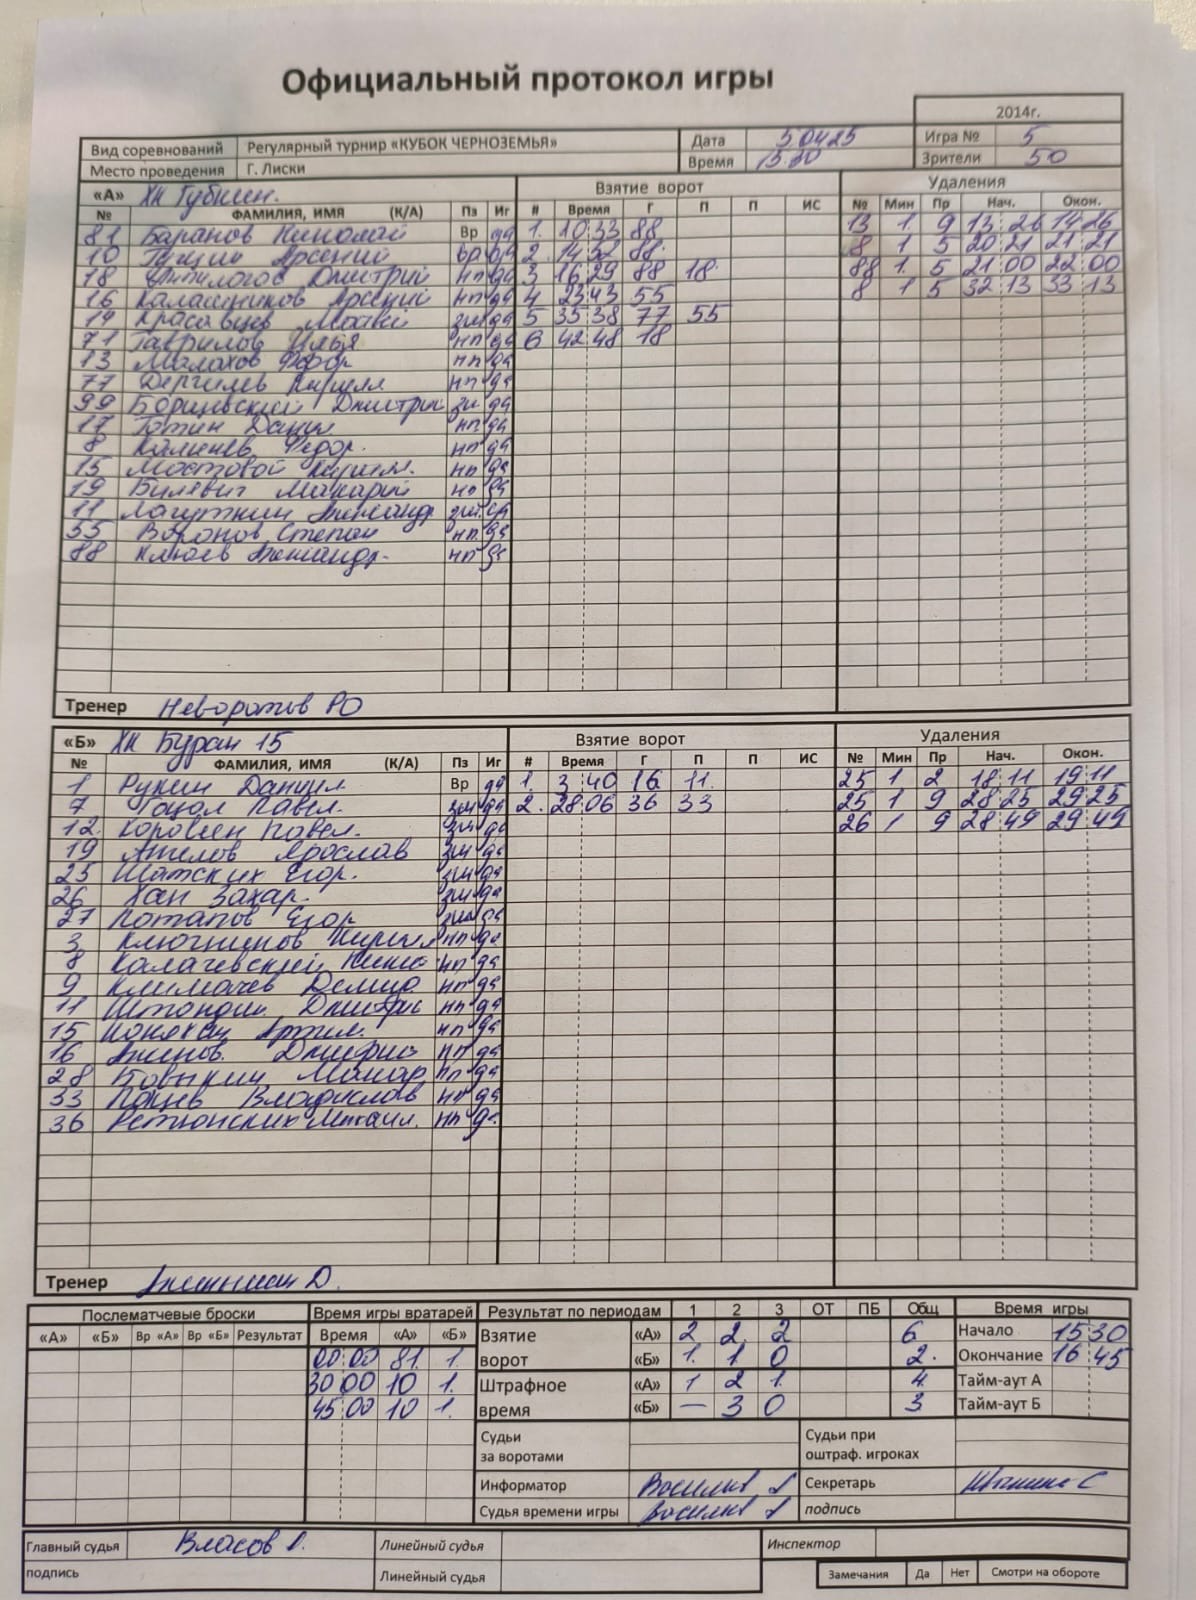 Официальный протокол игры
2014г.
Вид соревнований Регулярный турнир «КУБОК ЧЕРНОЗЕМЬЯ» Дата 50425 Игра № 5
Место проведения Г. Лиски Время 15.30 Зрители 50
«А» ХК Губкин. Взятие ворот Удаления
№ ФАМИЛИЯ, ИМЯ (К/А) Пз Иг # Время Г П П ИС № Мин Пр Нач. Окон.
81 Баранов Николай Вр да 1. 10 33 88 13 1. 9 13 26 14 26
10 Арсений Вр да 2. 14 52 88. 8 1 5 20 21 21 21
18 Дмитрий нп да 3 16 29 88 18. 88 1. 5 21 00 22 00
16 Калашников Арсений нп да 4 23 43 55 8 1 5 32 13 33 13
14 Красавцев зщ да 5 35 38 77 55
71 Гаврилов Илья нп да 6 42 48 18
13 Малахов Фёдор нп да
77 Дергилев Кирилл нп да
99 Борщевский Дмитрий зщ да
17 Данил нп да
8 Федор. нп да
15 Мостовой Кирилл. нп да
19 Билевич Макарий нп да
11 Лагуткин Александр зщ да
55 Воронов Степан нп. да
88 Клюев Александр. нп да
Тренер РО
«Б» ХК Буран 15 Взятие ворот Удаления
№ ФАМИЛИЯ, ИМЯ (К/А) Пз Иг # Время Г П П ИС № Мин Пр Нач. Окон.
1 Рукин Даниил Вр да 1. 3 40 16 11. 25 1 2 18 11 19 11
7 Гоцол Павел. зщ да 2. 28 06 36 33 25 1 9 28 25 29 25
12. Павел. зщ да 26 1 9 28 49 29 49
19 Ярослав зщ да
25 Шатских Егор. зщ да
26 Хан Захар. зщ да
27 Потапов Егор зщ да
3 Ключников Кирилл нп да
8 Калачевский нп да
9 Климачев Демид нп да
11 Дмитрий нп да
15 Артем. нп да
16 Дмитрий нп да
28 Ковыкин Макар нп да
33 Владислав нп да
36 Ретюнских Михаил. нп да
Тренер Д.
Послематчевые броски Время игры вратарей Результат по периодам 1 2 3 ОТ ПБ Общ Время игры
«А» «Б» Вр «А» Вр «Б» Результат Время «А» «Б» Взятие «А» 2 2. 2 6 Начало 15 30
00 00 81 1. ворот «Б» 1. 1 0 2. Окончание 16 45
30 00 10 1. Штрафное «А» 1 2 1. 4. Тайм-аут А
45 00 10 1. время «Б» — 3 0 3 Тайм-аут Б
Судьи за воротами Судьи при оштраф. игроках
Информатор Секретарь
Судья времени игры подпись
Главный судья Власов Линейный судья Инспектор
подпись Линейный судья Замечания Да Нет Смотри на обороте